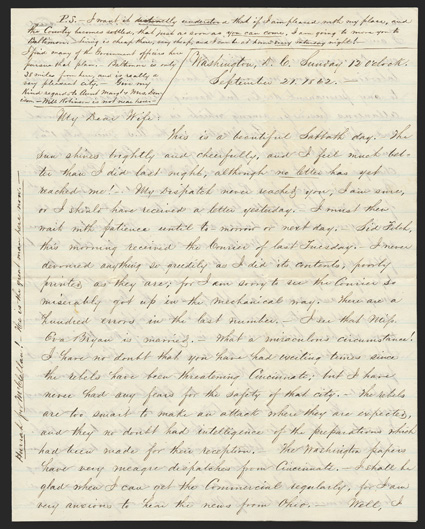 P.S. – I want it distinctly understood that if I am pleased with my place, and
the Country becomes settled, that just as soon as you can come, I am going to move you to
Baltimore. Living is cheap there, very cheap, and I can be at home every saturday night!
I find many of the Government officers here
pursue that plan. Baltimore is only
38 miles from here, and is really a
very pleasant city – Give my
Kind regards to Aunt Margt &
– Will Robison is not now here –
Washington, D.C. Sunday 12 O'clock.
September 21. 1862.
My Dear Wife:
This is a beautiful Sabbath day. The
sun shines brightly and cheerfully, and I feel much bet-
ter than I did last night, although no letter has yet
reached me! – My Despatch never reached you, I am sure,
or I should have received a letter yesterday. – I must then
wait with patience until to morrow or next day. – Fitch,
this morning received the Courier of last Tuesday. I never
devoured anything so greedily as I did its contents, poorly
printed as they are; for I am sorry to see the Courier so
miserably got up in the mechanical way. There are a
hundred errors in the last number. – I see that Miss
Ora Bryan is married. – What a miraculous circumstance!
I have no doubt that you have had exciting times since
the rebels have been threatening Cincinnati; but I have
never had any fears for the safety of that city. – The rebels
are too smart to make an attack where they are expected,
and they no doubt had intelligence of the preparations which
had been made for their reception. The Washington papers
have very meagre despatches from Cincinnati. I shall be
glad when I can get the Commercial regularly, for I am
very anxious to hear the news from Ohio. – Well, I
Hurrah for McClellan! He is the great man here now. –